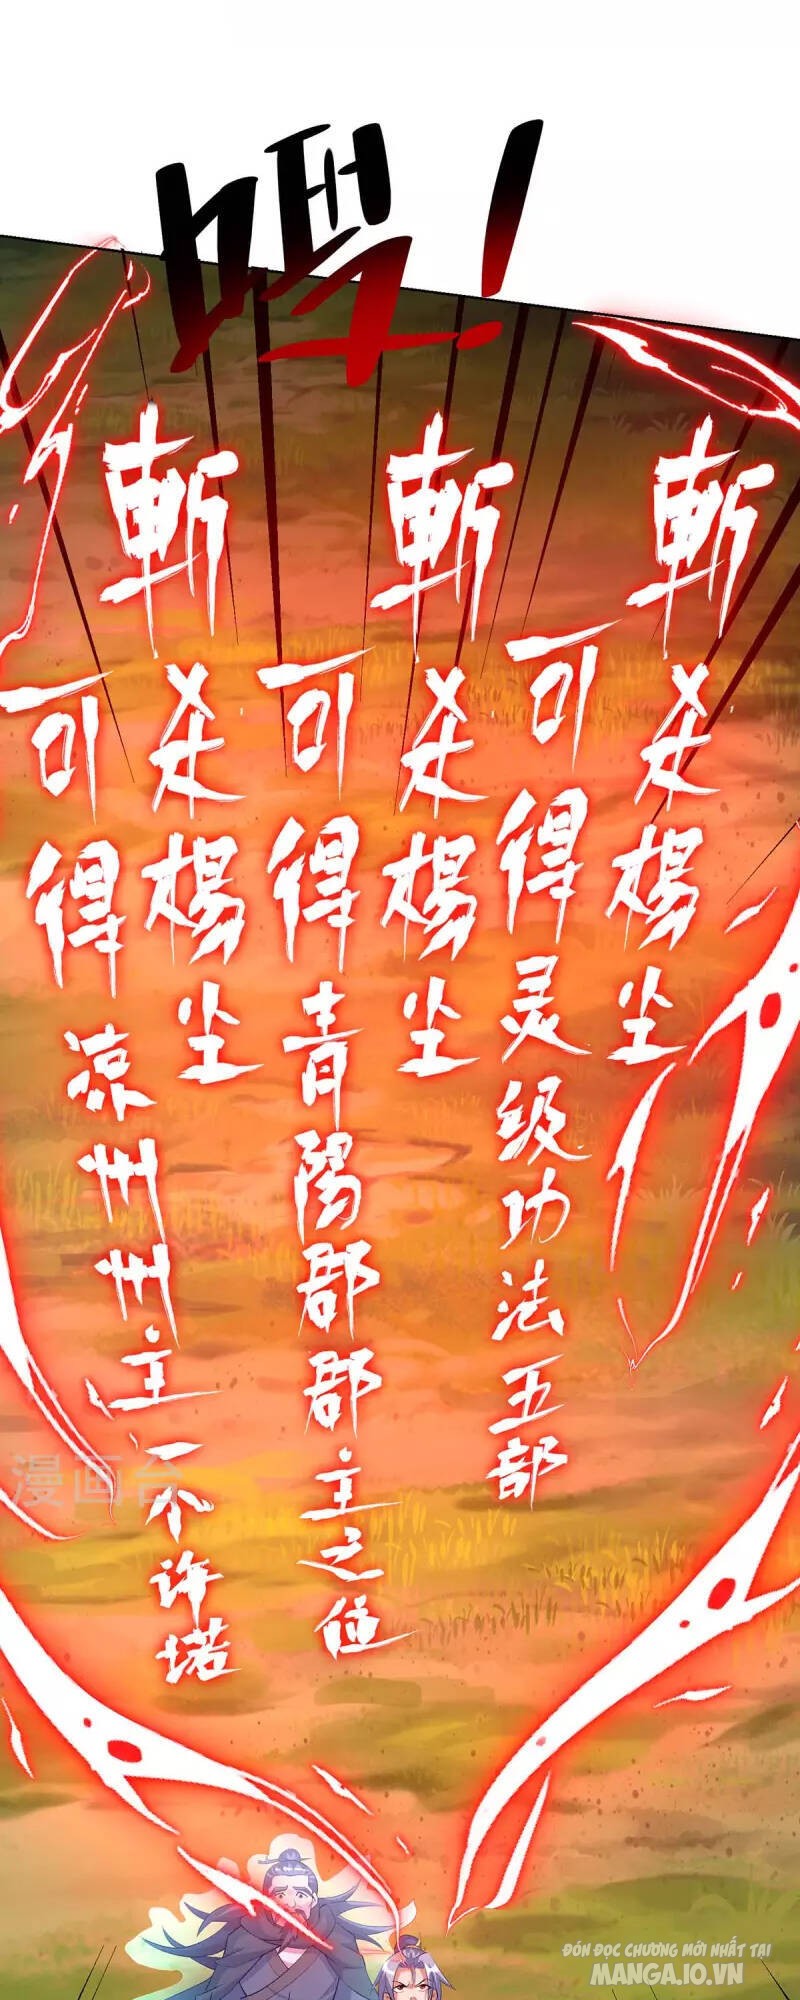 嘿！
斬杀楊尘
可得灵级功法五部
斬杀楊尘
可得青陽郡郡主之位
斬杀楊尘
可得凉州州主一个许诺
漫画台
ĐÓN ĐỌC CHƯƠNG MỚI NHẤT TẠI
MANGA.IO.VN